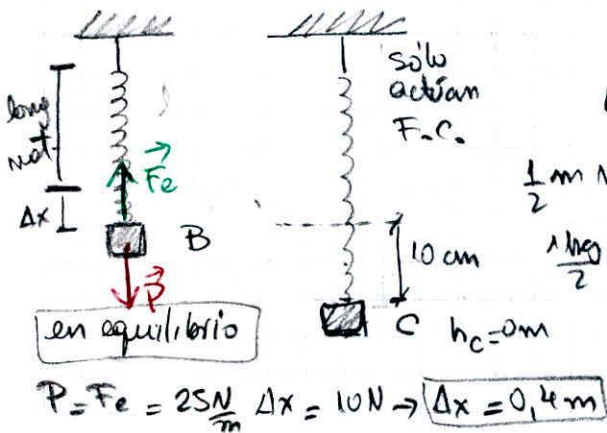 long
nat.
Δx
Fe
B
P
en equilibrio
sólo
actúan
F.C.
10 cm
C h_C=0m
1/2 m
1kg/2
P = Fe = 25 N/m Δx = 10N → Δx = 0,4 m